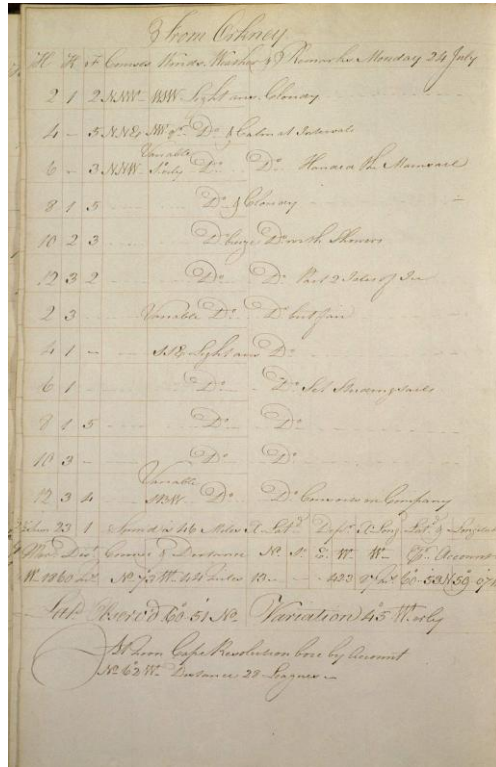 From Orkney
H K F Courses Winds Weather & Remarks Monday 24 July
2 1 2 NNW WSW Light airs Cloudy
4 - 5 Do & Calm at Intervals
Variable
6 - 3 NNW Do Do Handed the Mainsail
8 1 5 Do & Cloudy
10 2 3 Do Do with Showers
12 3 2 Do Do Past 2 Isles of Ice
2 3 Variable Do Do but fair
4 1 - Light airs Do
6 1 Do Do Set Studdingsails
8 1 5 Do Do
10 3 - Do Do
Variable
12 3 4 Do Do Consorts in Company
23 1 is 46 Miles
Course & Distance No N E W W Account
No 73 W 44 Miles 13 423
Latd Observed 60°51 No Variation 45 Wterly
At Noon Cape Resolution bore by Account
No 62 W Distance 28 Leagues